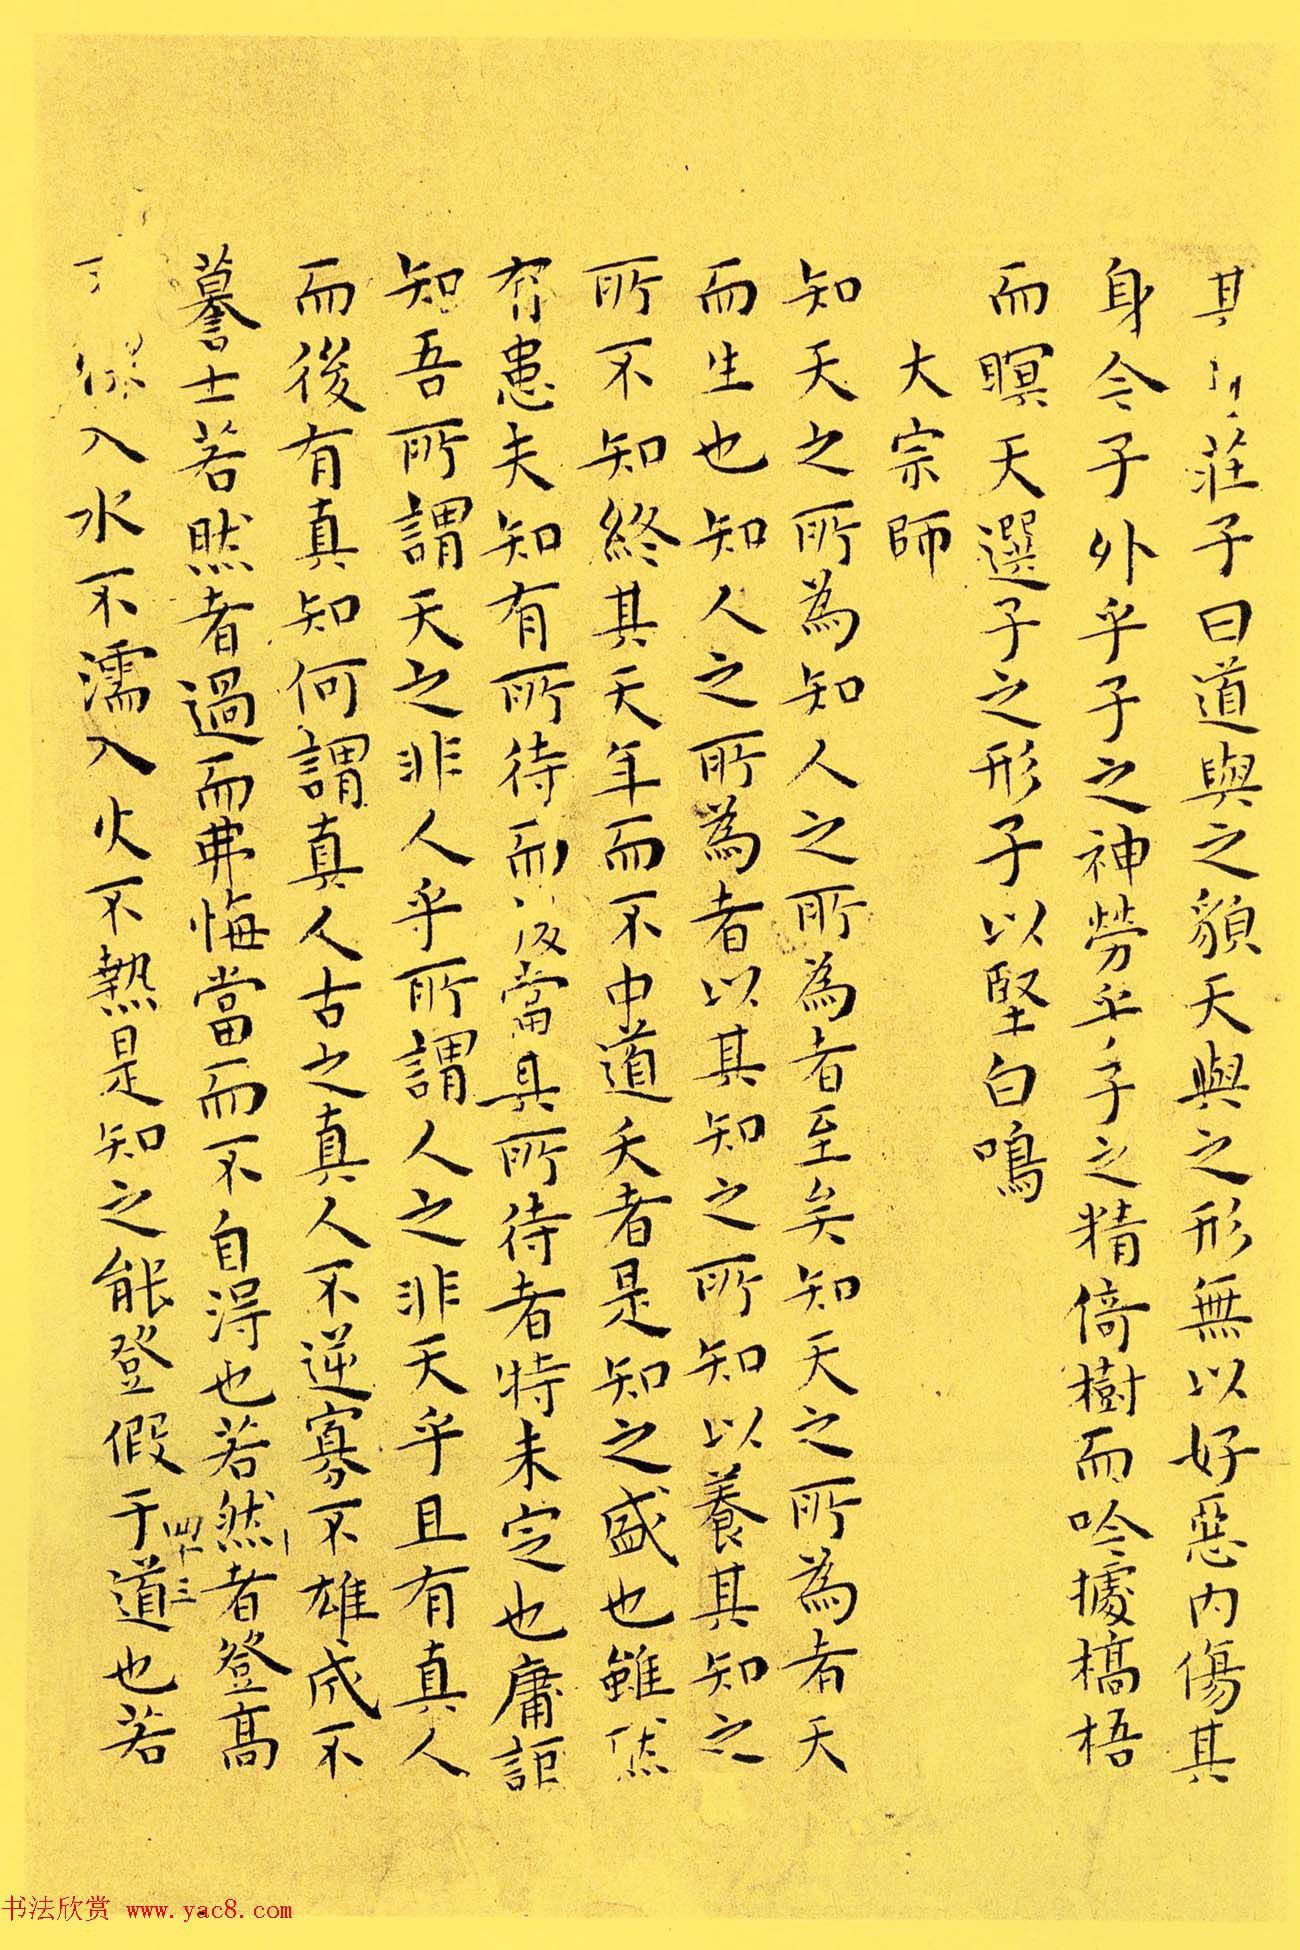 其身莊子曰道與之貌天與之形無以好惡內傷其
身今子外乎子之神勞乎子之精倚樹而吟據槁梧
而瞑天選子之形子以堅白鳴
大宗師
知天之所為知人之所為者至矣知天之所為者天
而生也知人之所為者以其知之所知以養其知之
所不知終其天年而不中道夭者是知之盛也雖然
有患夫知有所待而後當其所待者特未定也庸詎
知吾所謂天之非人乎所謂人之非天乎且有真人
而後有真知何謂真人古之真人不逆寡不雄成不
謩士若然者過而弗悔當而不自得也若然者登高
不慄入水不濡入火不熱是知之能登假于道也若
四十三
书法欣赏 www.yac8.com